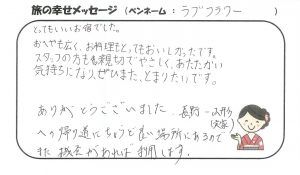 旅の幸せメッセージ (ペンネーム : ラブフラワー )
とってもいいお宿でした。
おへやも広く、お料理もとてもおいしかったです。
スタッフの方も親切でやさしく、あたたかい
気持ちになり、ぜひまた、とまりたいです。
ありがとうございました。長野→山形
(実家)
への帰り道にちょうど良い場所にあるので
また機会があれば利用します。